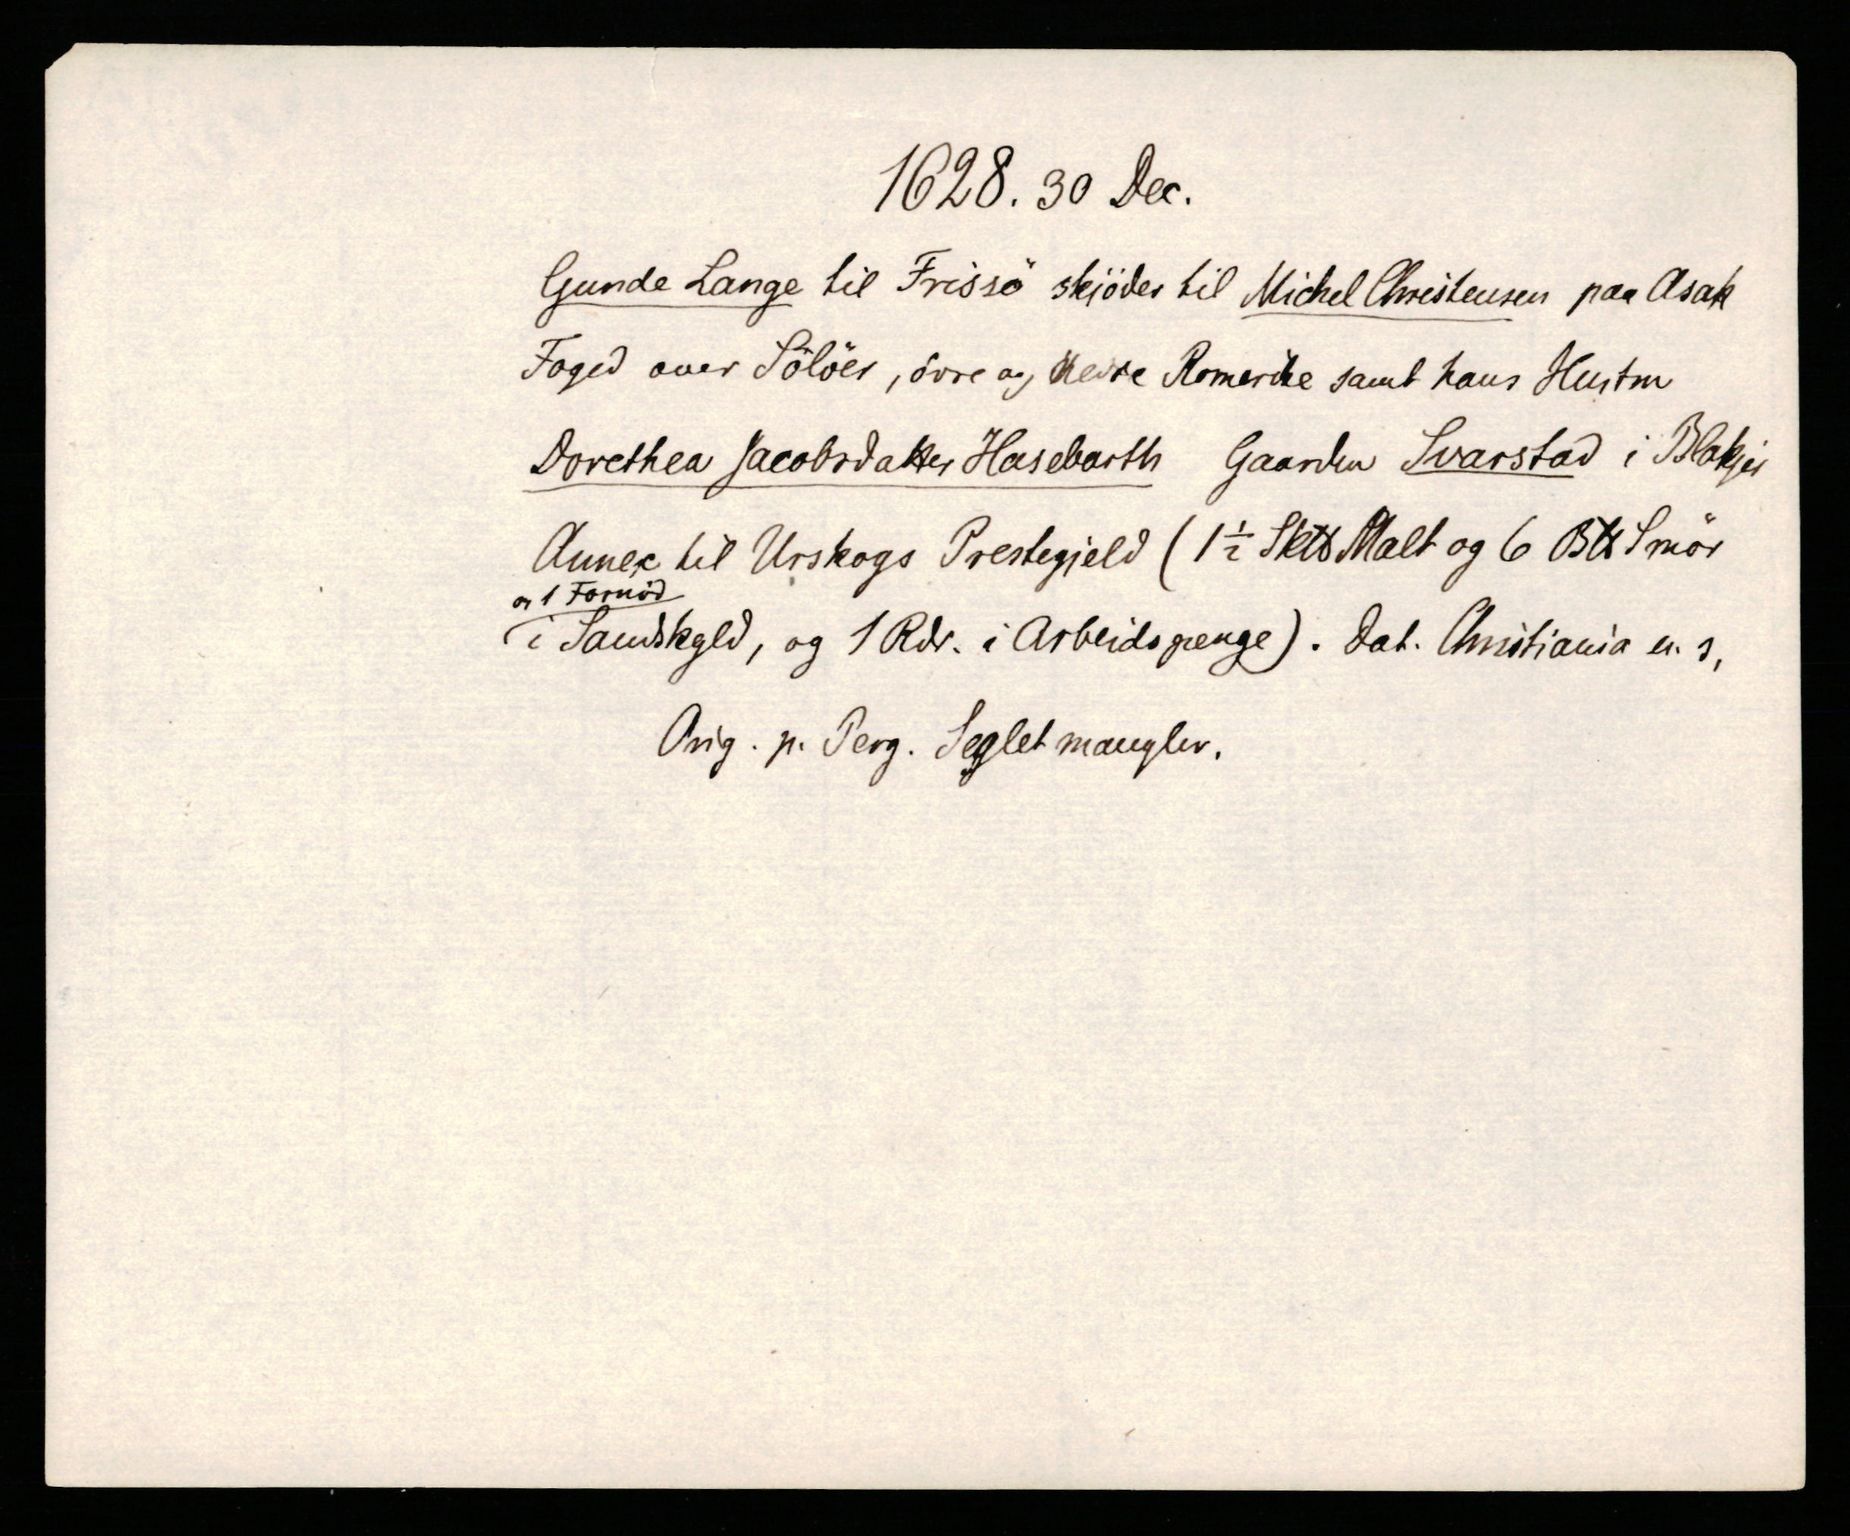 1628. 30 Dec.
Gunde Lange til Frissö skjöder til Michel Christensen paa Asak
Foged over Solöer, övre og nedre Romerike samt hans Hustru
Dorethea Jacobsdatter Hasebarth Gaarden Svarstad i Blakjer
Annex til Urskogs Prestegjeld (1½ Malt og 6 Smör
og 1 Fornöd
i Landskyld, og 1 Rdr. i Arbeidspenge). Dat. Christiania u. s,
Orig. p. Perg. Seglet mangler.